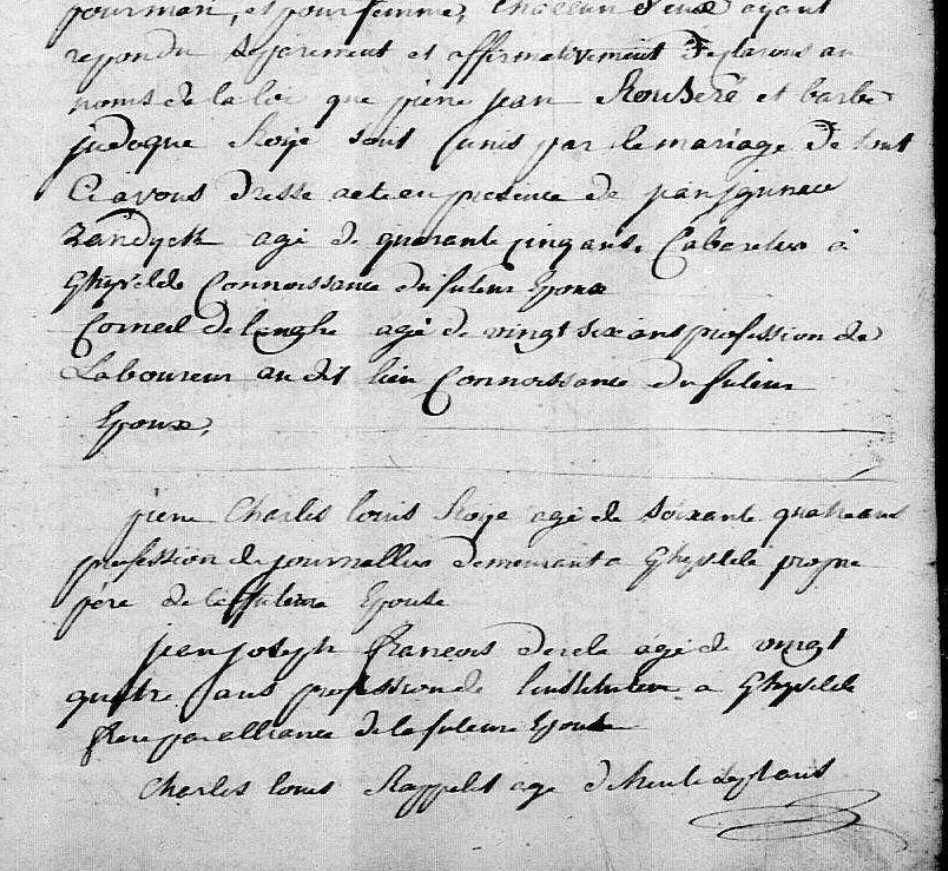 pour mari, et pour femme, chacun d'eux ayant
repondu separement et affirmativement declarons au
noms de la loi que piere jean Rousere et barbe
judoque Roije sont unis par le mariage de tout
Ci avons dresse acte en presence de jean ignace
Zandyck agé de quarante cinq ans, Cabaretier à
Ghyvelde Connoissance du futeur Epoux
Corneil delenghe agé de vingt six ans profession de
Laboureur au dit lieu Connoissance du futeur
Epoux,
piere Charles louis Roije agé de soixante quatre ans
profession de journallier demeurant a Ghyvelde propre
pére de la futeure Epouse
jean joseph francois agé de vingt
quattre ans profession de linstituteur a Ghyvelde
frere par alliance de la futeure Epouse
Charles louis Rappelet age de trente sept ans